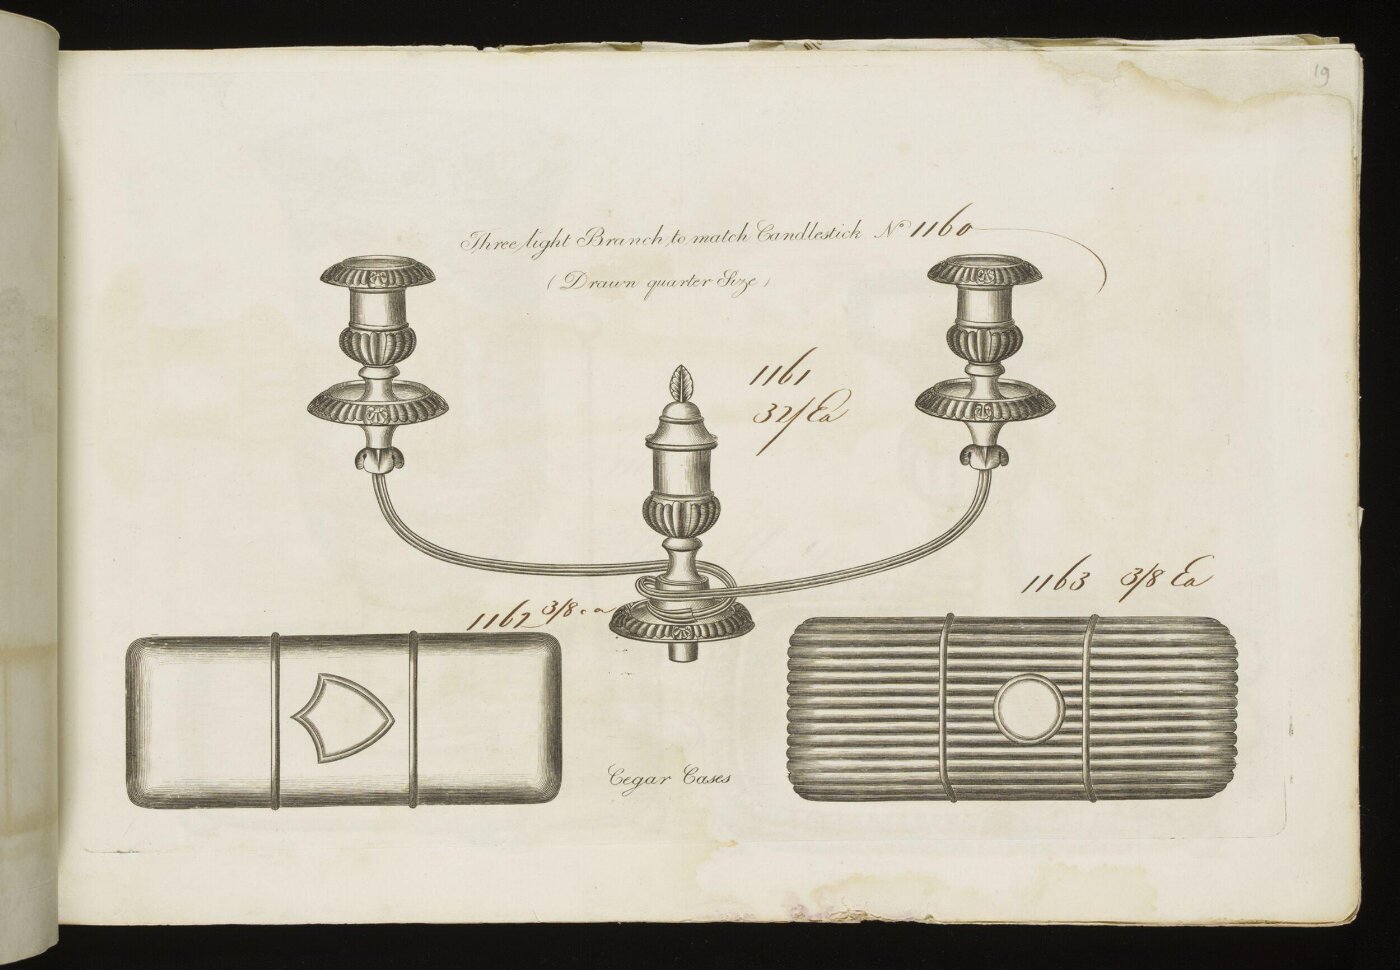 19
Three light Branch to match Candlestick No 1160
(Drawn quarter Size)
1161
32/ Ea
1163 3/8 Ea
1162 3/8 ea
Cegar Cases